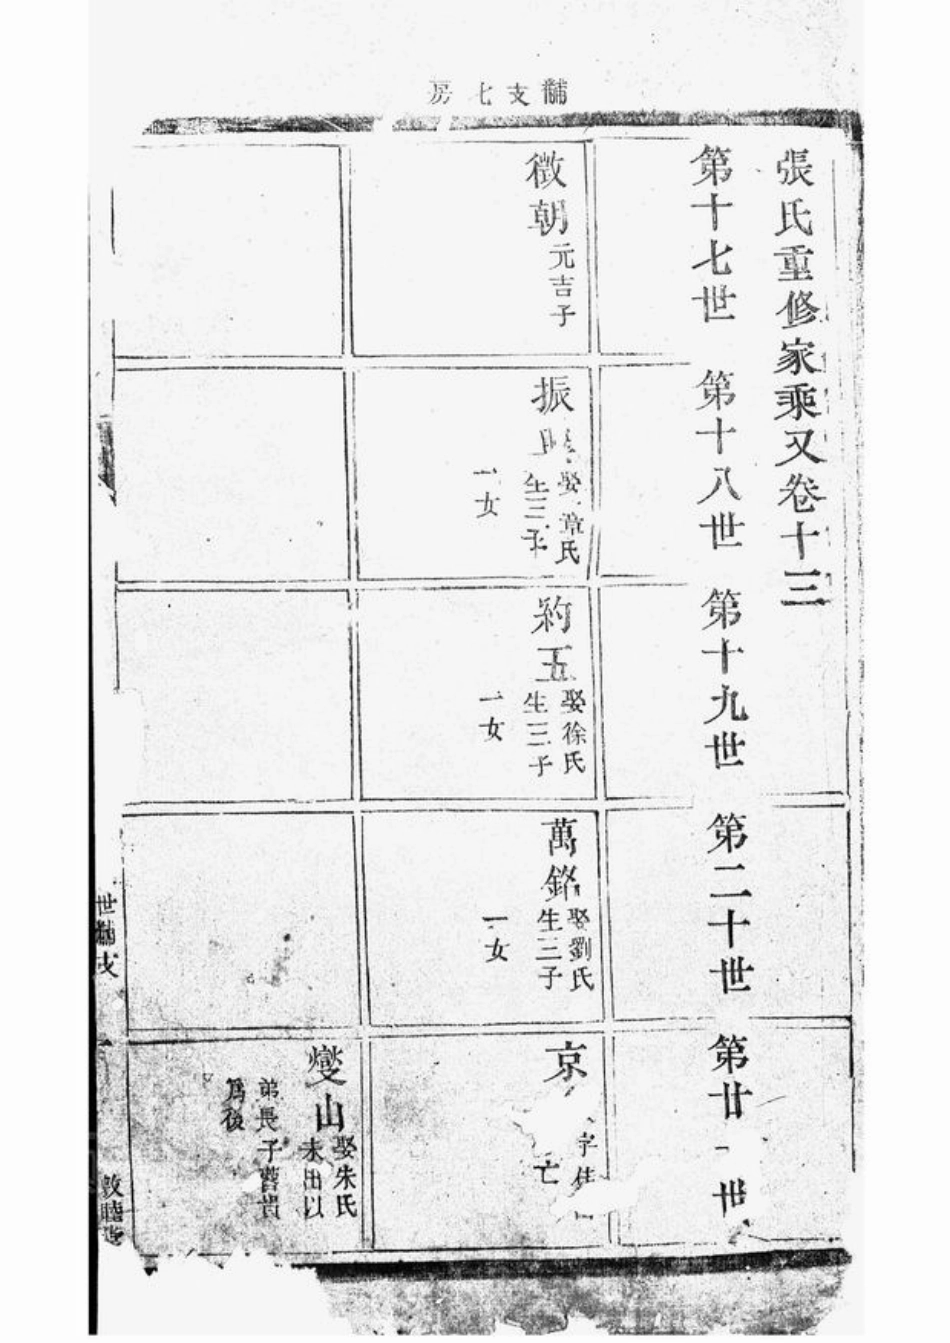 黼支七房
張氏重修家乘又卷十三
第十七世 第十八世 第十九世 第二十世 第廿一世
徵朝元吉子
振
娶章氏
生三子
一女
約五
娶徐氏
生三子
一女
萬銘
娶劉氏
生三子
一女
京
字佳
亡
燮山
娶朱氏
未出以
弟長子
爲後
世黼支
一
敦睦